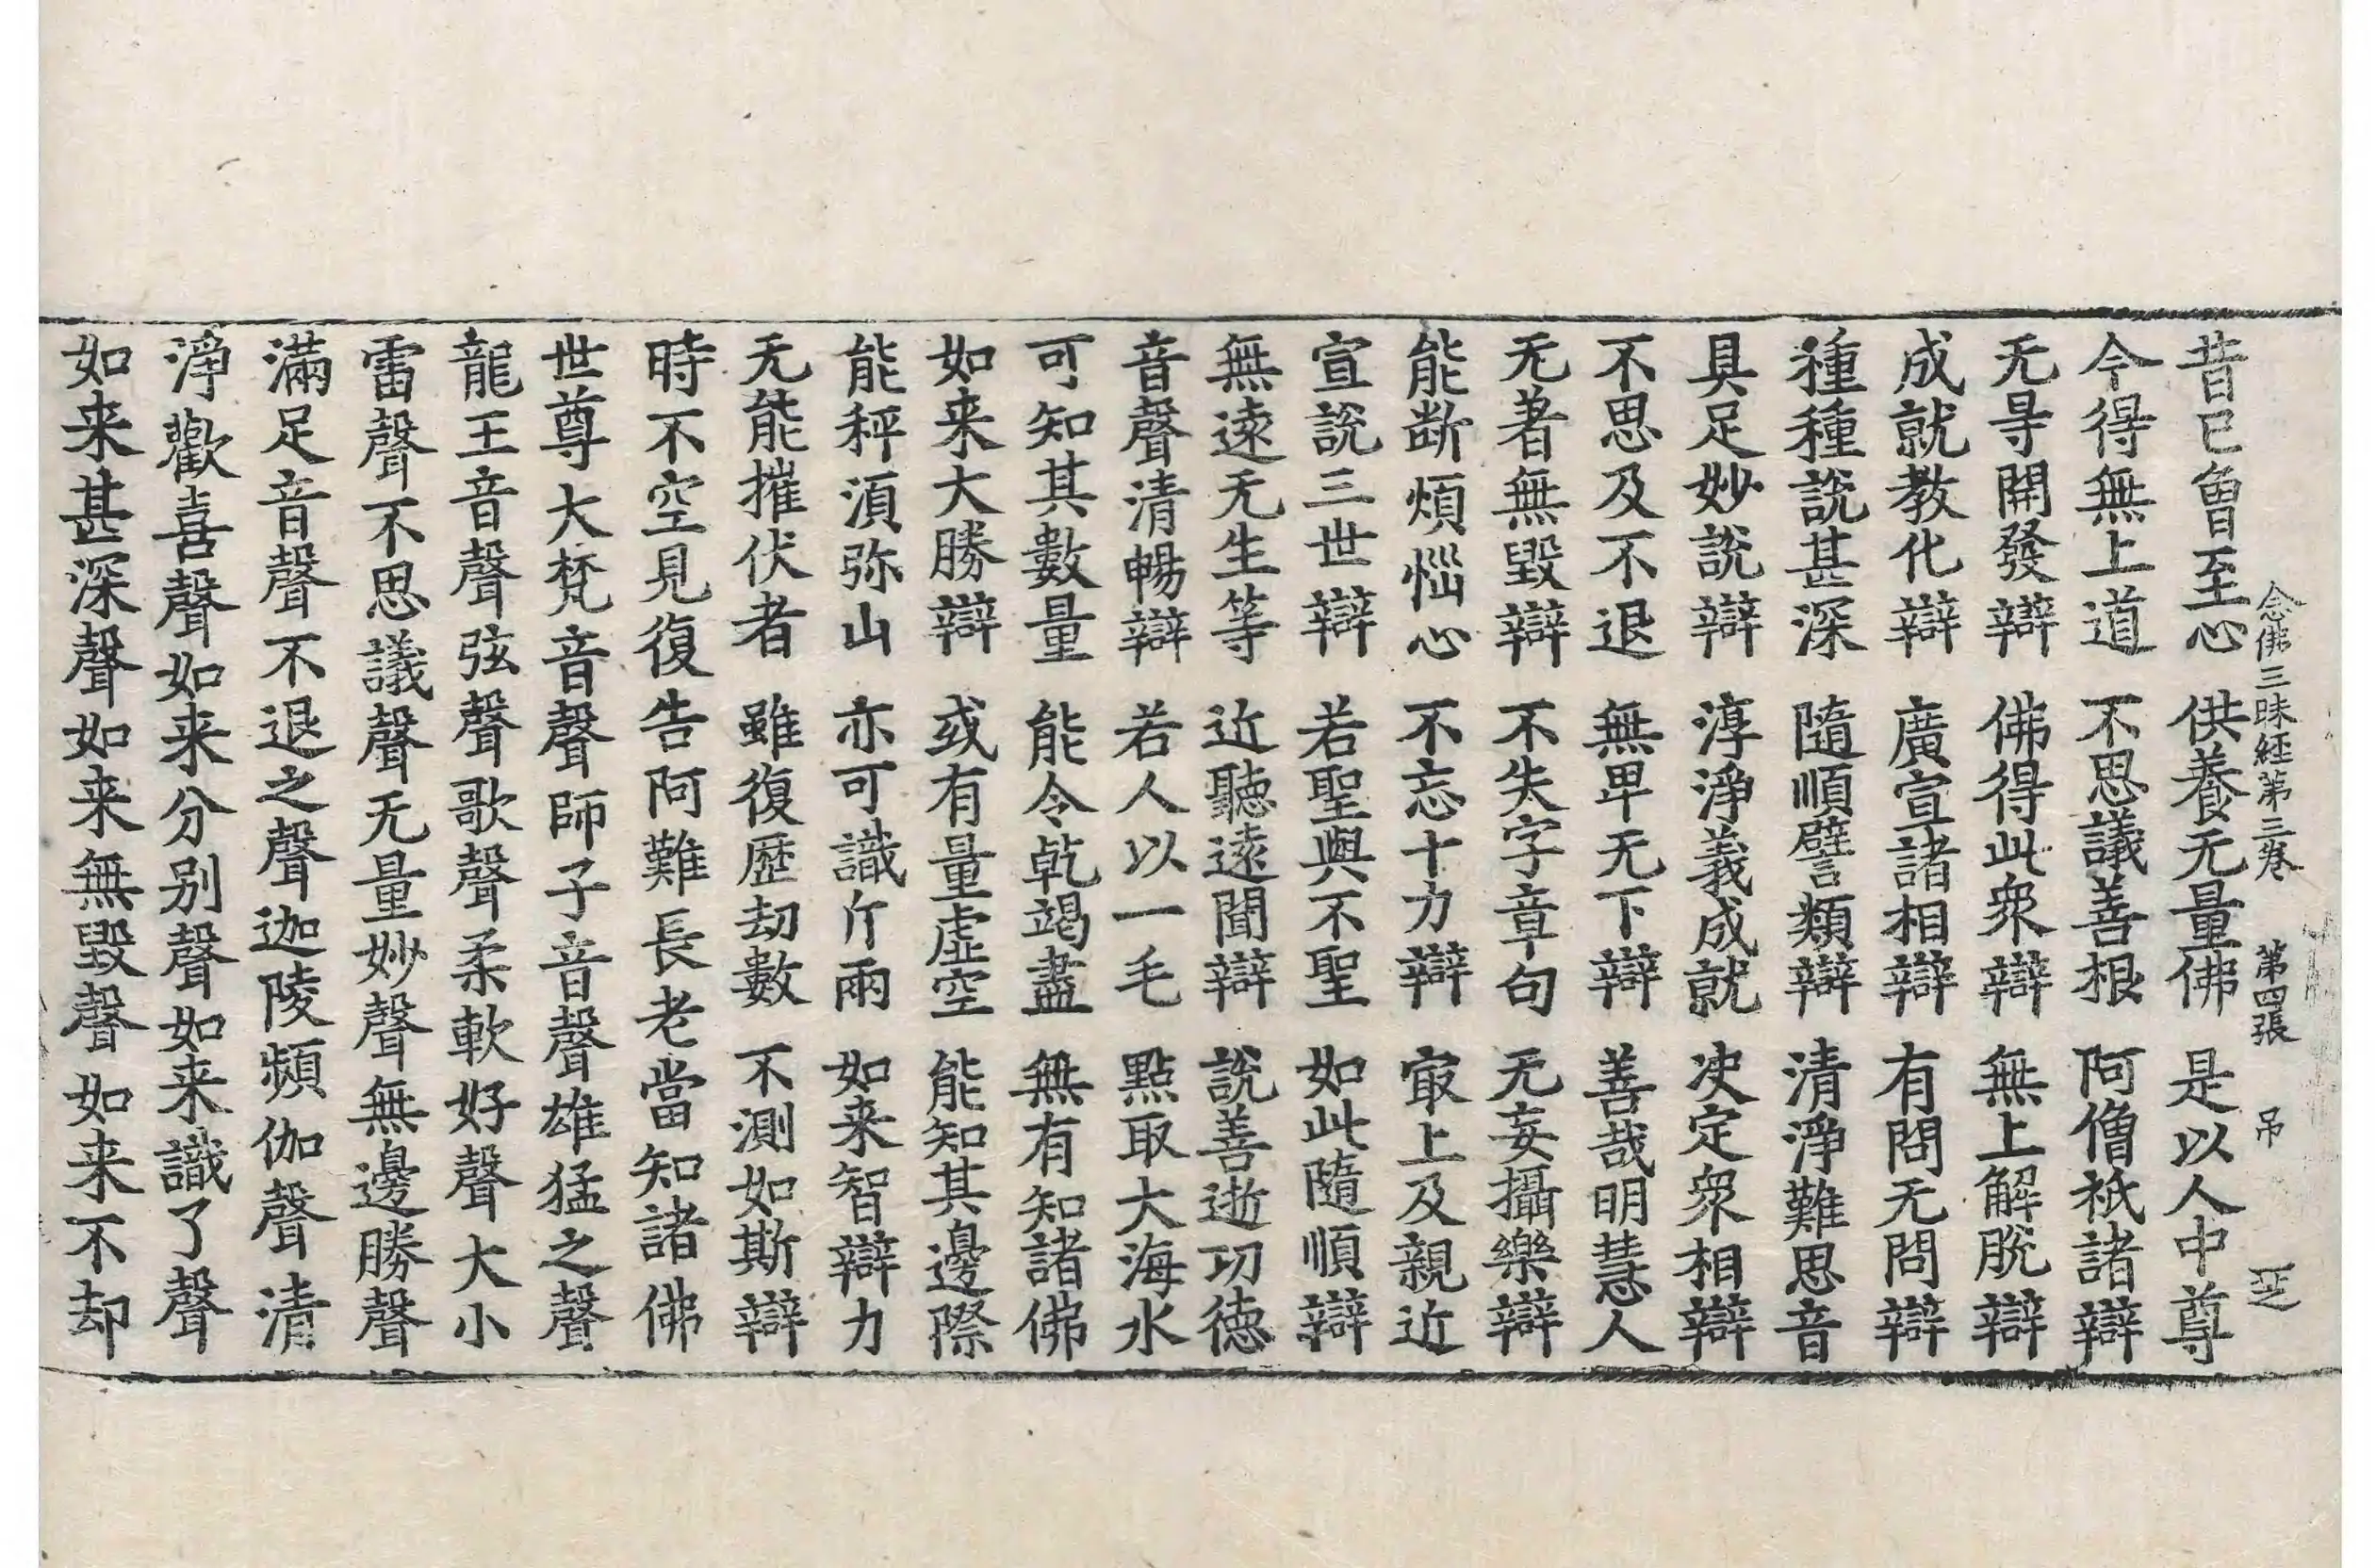 念佛三昧経第三卷　第四張　吊
昔已曾至心　供養无量佛　是以人中尊
今得無上道　不思議善根　阿僧祇諸辯
无㝵開發辯　佛得此衆辯　無上解脫辯
成就教化辯　廣宣諸相辯　有問无問辯
種種說甚深　隨順譬類辯　清淨難思音
具足妙說辯　淳淨義成就　决定衆相辯
不思及不退　無卑无下辯　善哉明慧人
无著無毀辯　不失字章句　无妄攝樂辯
能断煩惱心　不忘十力辯　㝡上及親近
宣說三世辯　若聖與不聖　如此隨順辯
無遠无生等　近聽遠聞辯　說善逝功德
音聲清暢辯　若人以一毛　點取大海水
可知其數量　能令乾竭盡　無有知諸佛
如来大勝辯　或有量虛空　能知其邊際
能秤湏弥山　亦可識斤兩　如来智辯力
无能摧伏者　雖復歷劫數　不測如斯辯
時不空見復告阿難長老當知諸佛
世尊大梵音聲師子音聲雄猛之聲
龍王音聲弦聲歌聲柔軟好聲大小
雷聲不思議聲无量妙聲無邊勝聲
滿足音聲不退之聲迦陵頻伽聲清
淨歡喜聲如来分别聲如来識了聲
如来甚深聲如来無毀聲如来不却